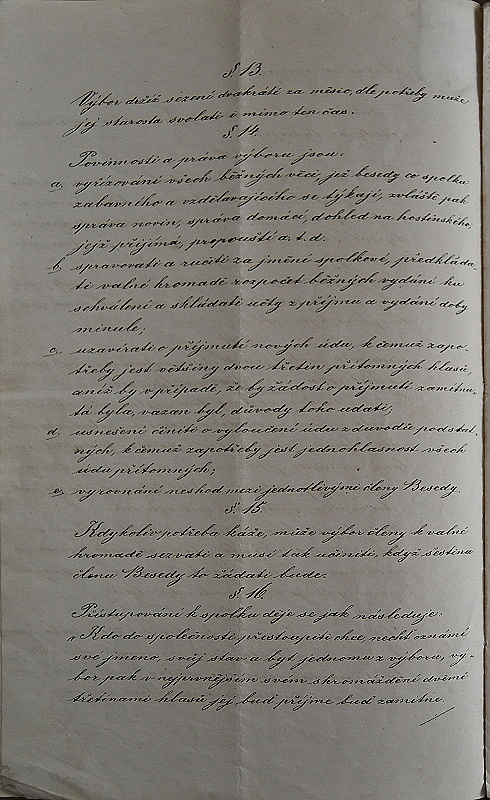 § 13.
Výbor držíž sezení dvakráte za měsíc, dle potřeby může
jej starosta svolati i mimo ten čas.
§ 14.
Povinnosti a práva výboru jsou:
a, vyřizování všech běžných věcí, jež besedy co spolku
zábavného a vzdělavajícího se týkají, zvláště pak
správa novin, správa domácí, dohled na hostinského,
jejž přijímá, propouští a. t. d.
b, spravovati a ručiti za jmění spolkové, předkláda-
ti valné hromadě rozpočet běžných vydání ku
schválení a skládati účty z příjmu a vydání doby
minulé;
c, uzavírati o přijmutí nových údů, k čemuž zapo-
třeby jest většiny dvou třetin přítomných hlasů,
aniž by v případě, že by žádost o přijmutí zamítnu-
tá byla, vázán byl, důvody toho udati;
d, usnešení činiti o vyloučení údů z důvodů podstat-
ných, k čemuž zapotřeby jest jednohlasnost všech
údů přítomných;
e, vyrovnání neshod mezi jednotlivými členy Besedy.
§ 15.
Kdykoliv potřeba káže, může výbor členy k valné
hromadě sezvati a musí tak učiniti, když šestina
členů Besedy to žádati bude.
§ 16.
Přistupování k spolku děje se jak následuje:
Kdo do společnosti přistoupiti chce, nechť oznámí
své jmeno, svůj stav a byt jednomu z výboru, vý-
bor pak v nejprvnějším svém shromáždění dvěmi
třetinami hlasů jej buď přijme buď zamítne.